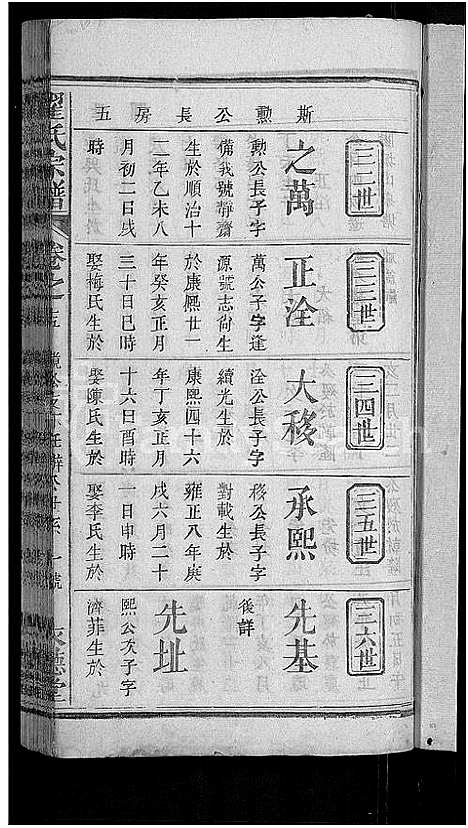 斯勲公長房五
三二世
之萬
勲公長子字
備我號靜齋
生於順治十
二年乙未八
月初二日戌
時
三三世
正淦
萬公子字逢
源號志尚生
於康熙廿一
年癸亥正月
三十日巳時
娶梅氏生於
三四世
大移
淦公長子字
續光生於
康熙四十六
年丁亥正月
十六日酉時
娶陳氏生於
三五世
承熙
移公長子字
對載生於
雍正八年庚
戌六月二十
一日申時
娶李氏生於
三六世
先基
後詳
先址
熙公次子字
濟菲生於
翟氏宗譜
卷之十五